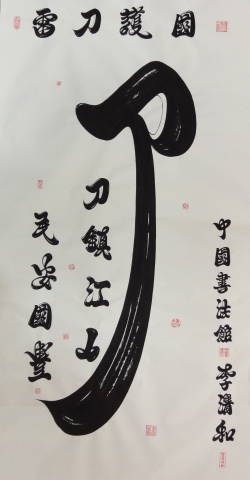 國護刀雷
刀
刀鎮江山
民安國豐
中國書法館李清和